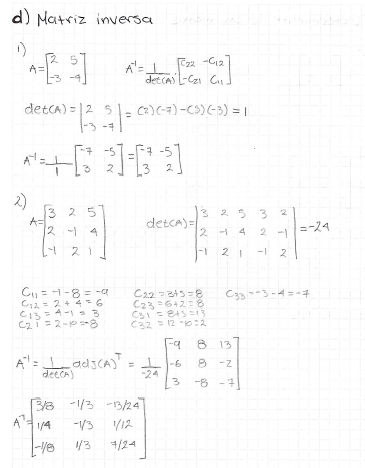 d) Matriz inversa
1)
A=[2 5
-3 -7] A⁻¹=1/det(A)·[C22 -C12
-C21 C11]
det(A)=|2 5
-3 -7|=(2)(-7)-(5)(-3)=1
A⁻¹=1/1[-7 -5
3 2]=[-7 -5
3 2]
2)
A=[3 2 5
2 -1 4
-1 2 1] det(A)=|3 2 5 3 2
2 -1 4 2 -1
-1 2 1 -1 2|=-24
C11=-1-8=-9 C22=3+5=8 C33=-3-4=-7
C12=2+4=6 C23=6+2=8
C13=4-1=3 C31=8+5=13
C21=2-10=-8 C32=12-10=2
A⁻¹=1/det(A) adj(A)ᵀ=1/-24[-9 8 13
-6 8 -2
3 -8 -7]
A⁻¹=[3/8 -1/3 -13/24
1/4 -1/3 1/12
-1/8 1/3 7/24]